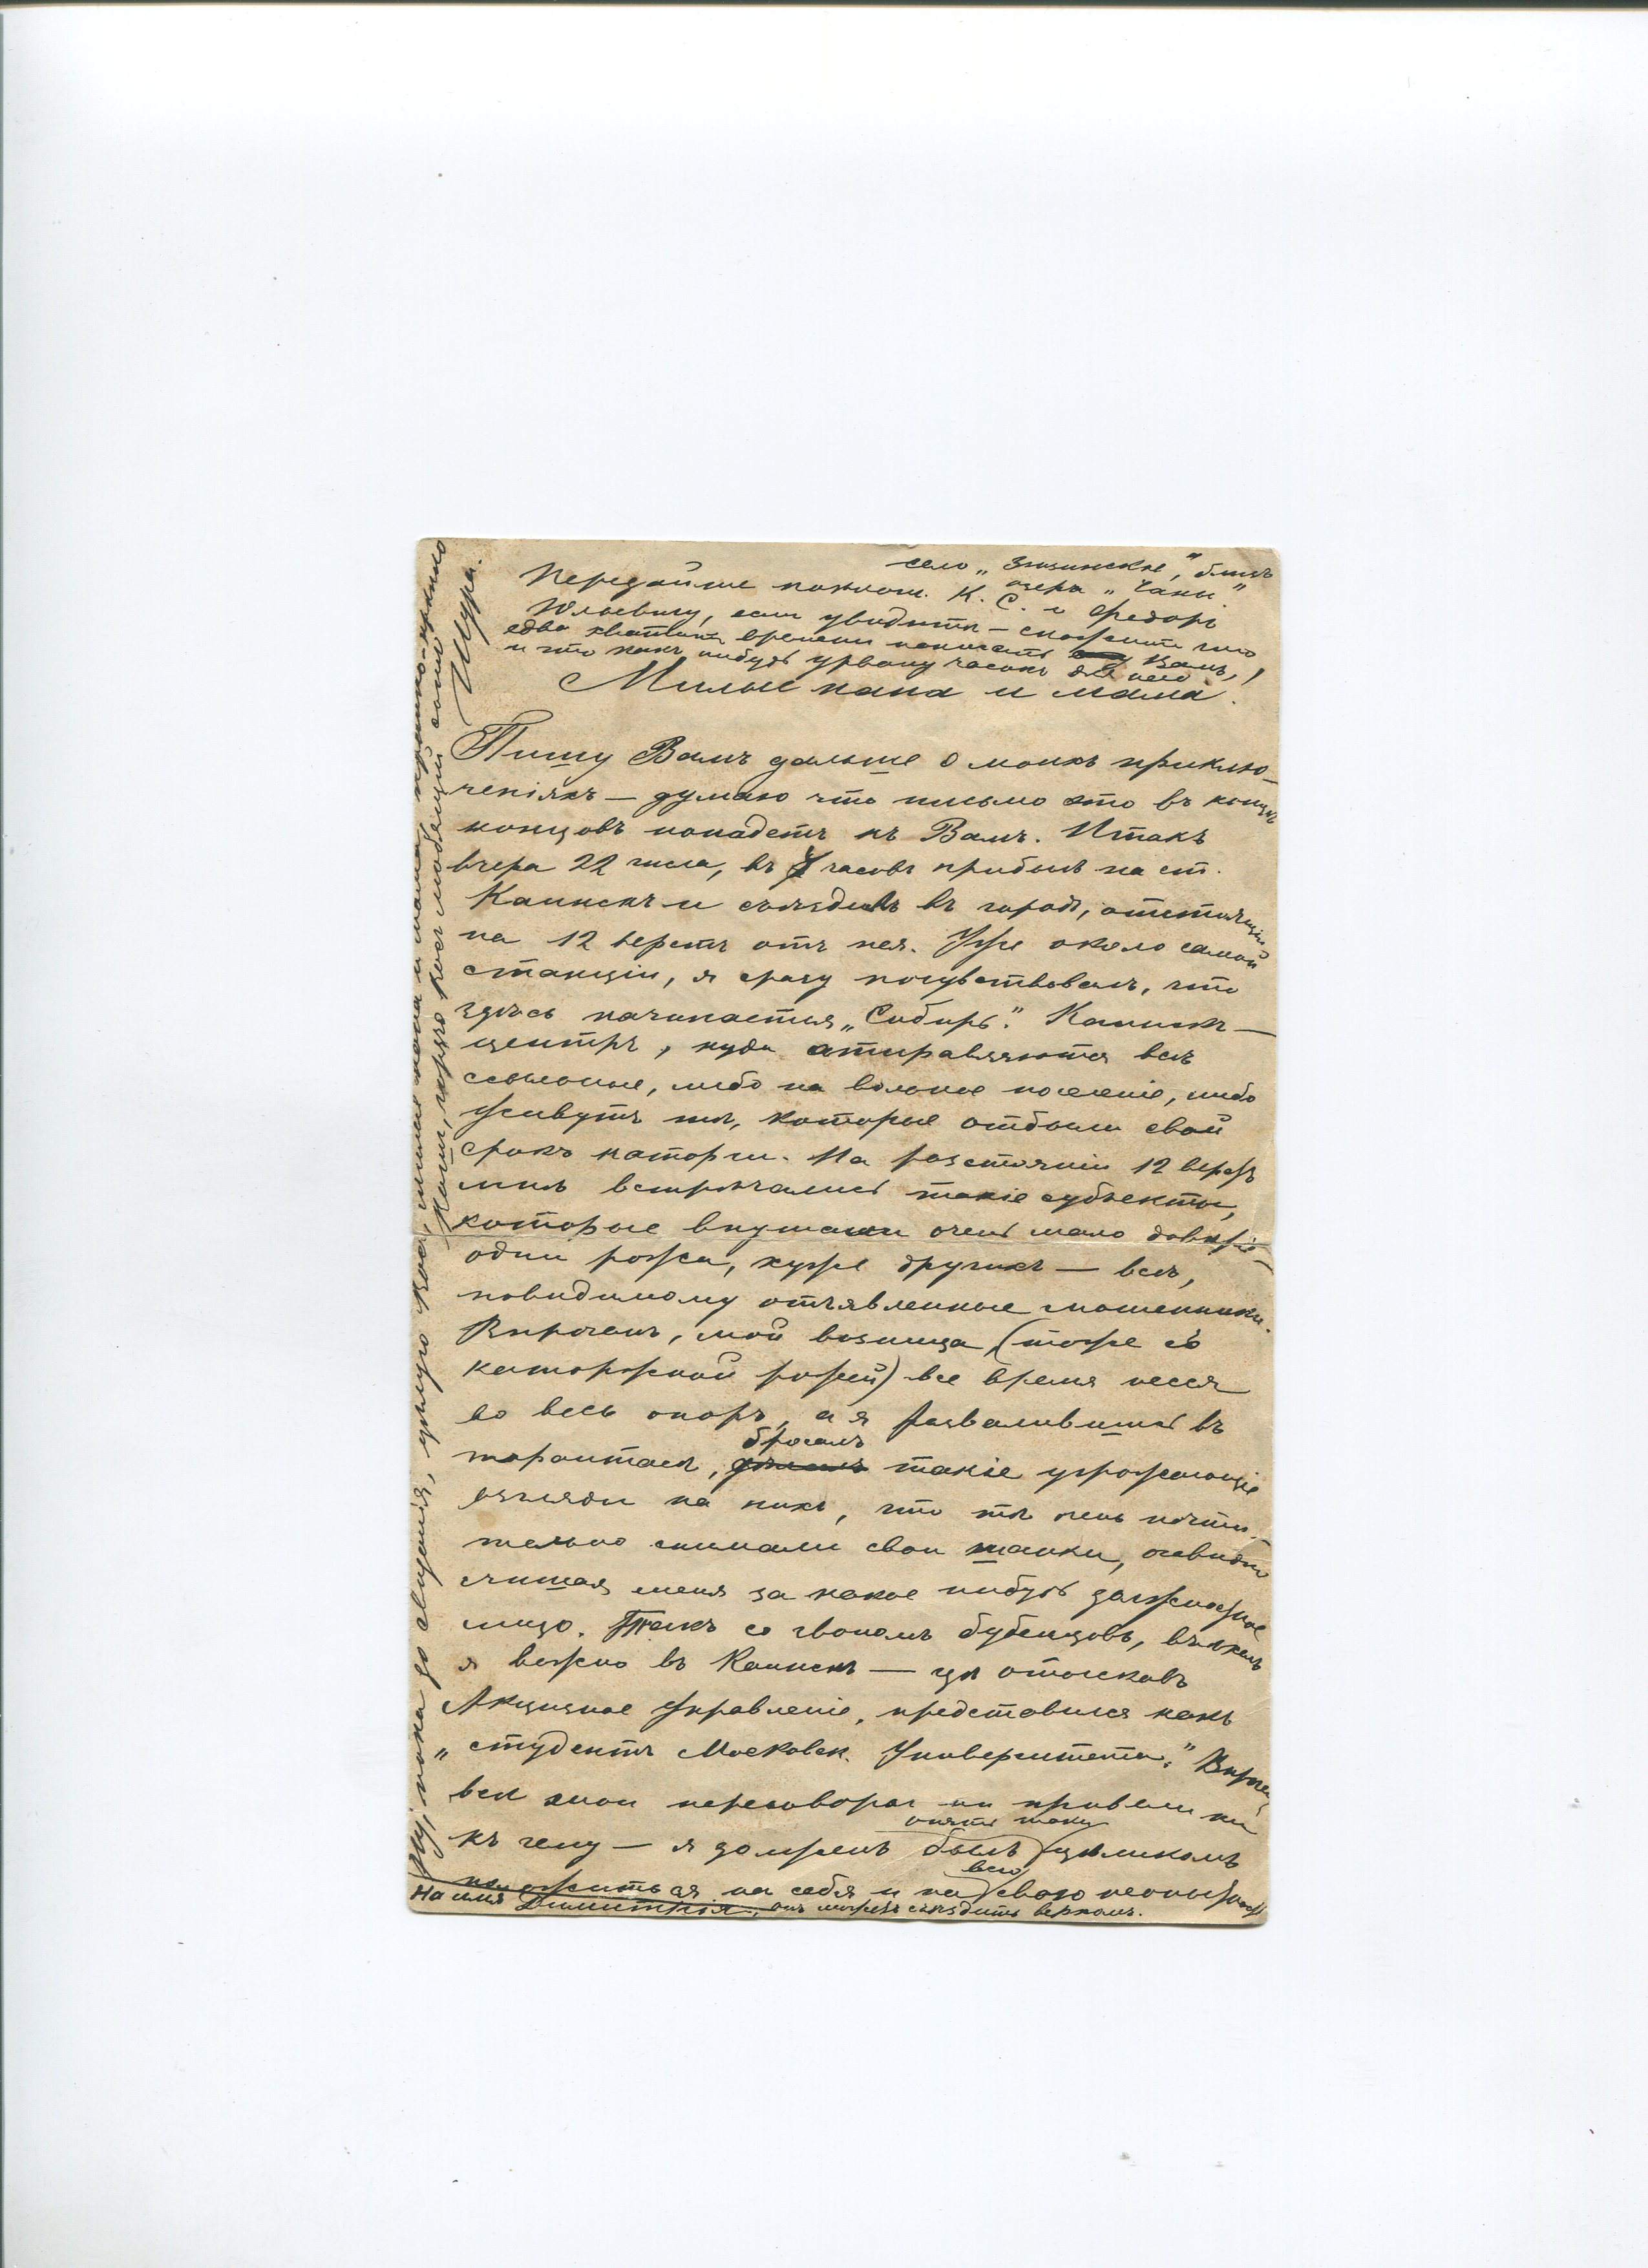 село „Зюзинское“, близъ
озера „Чаны“
Передайте поклон. К. С. и Федору
Юльевичу, если увидите — скажите что
едва хватило времени написать Вамъ,
и что какъ нибудь урвану часокъ для него!
Милые папа и мама.
Пишу Вамъ дальше о моихъ приклю-
ченіяхъ — думаю что письмо это въ концѣ
концовъ попадетъ къ Вамъ. Итакъ
вчера 22 числа, въ часовъ прибылъ на ст.
Каинскъ и съѣздилъ въ городъ, отстоящій
на 12 верстъ отъ нея. Уже около самой
станціи, я сразу почувствовалъ, что
здѣсь начинается „Сибирь“. Каинскъ —
центръ, куда отправляются всѣ
ссыльные, либо на вольное поселеніе, либо
живутъ тѣ, которые отбыли свой
срокъ каторги. На разстояніи 12 верстъ
мнѣ встрѣчались такіе субъекты,
которые внушали очень мало довѣрія —
одни рожи, хуже другихъ — всѣ,
повидимому отъявленные мошенники.
Впрочемъ, мой возница (тоже съ
каторжной рожей) все время несся
во весь опоръ, а я развалившись въ
тарантасѣ, бросалъ такіе угрожающіе
взгляды на нихъ, что тѣ очень почти-
тельно снимали свои шапки, очевидно
считая меня за какое нибудь должностное
лицо. Такъ со звономъ бубенцовъ, въѣхалъ
я важно въ Каинскъ — гдѣ отыскавъ
Акцизное Управленіе, представился какъ
„студентъ Московск. Университета.“ Впрочемъ
всѣ мои переговоры не привели ни
къ чему — я долженъ былъ опять таки цѣликомъ
положиться на себя и на всю свою неопытность
на имя Дмитрія, онъ можетъ съѣздить верхомъ.
Ну, пока до свиданія, цѣлую Васъ, милые папа и мама крѣпко-крѣпко
горячо Васъ любящій сынъ
Шура.